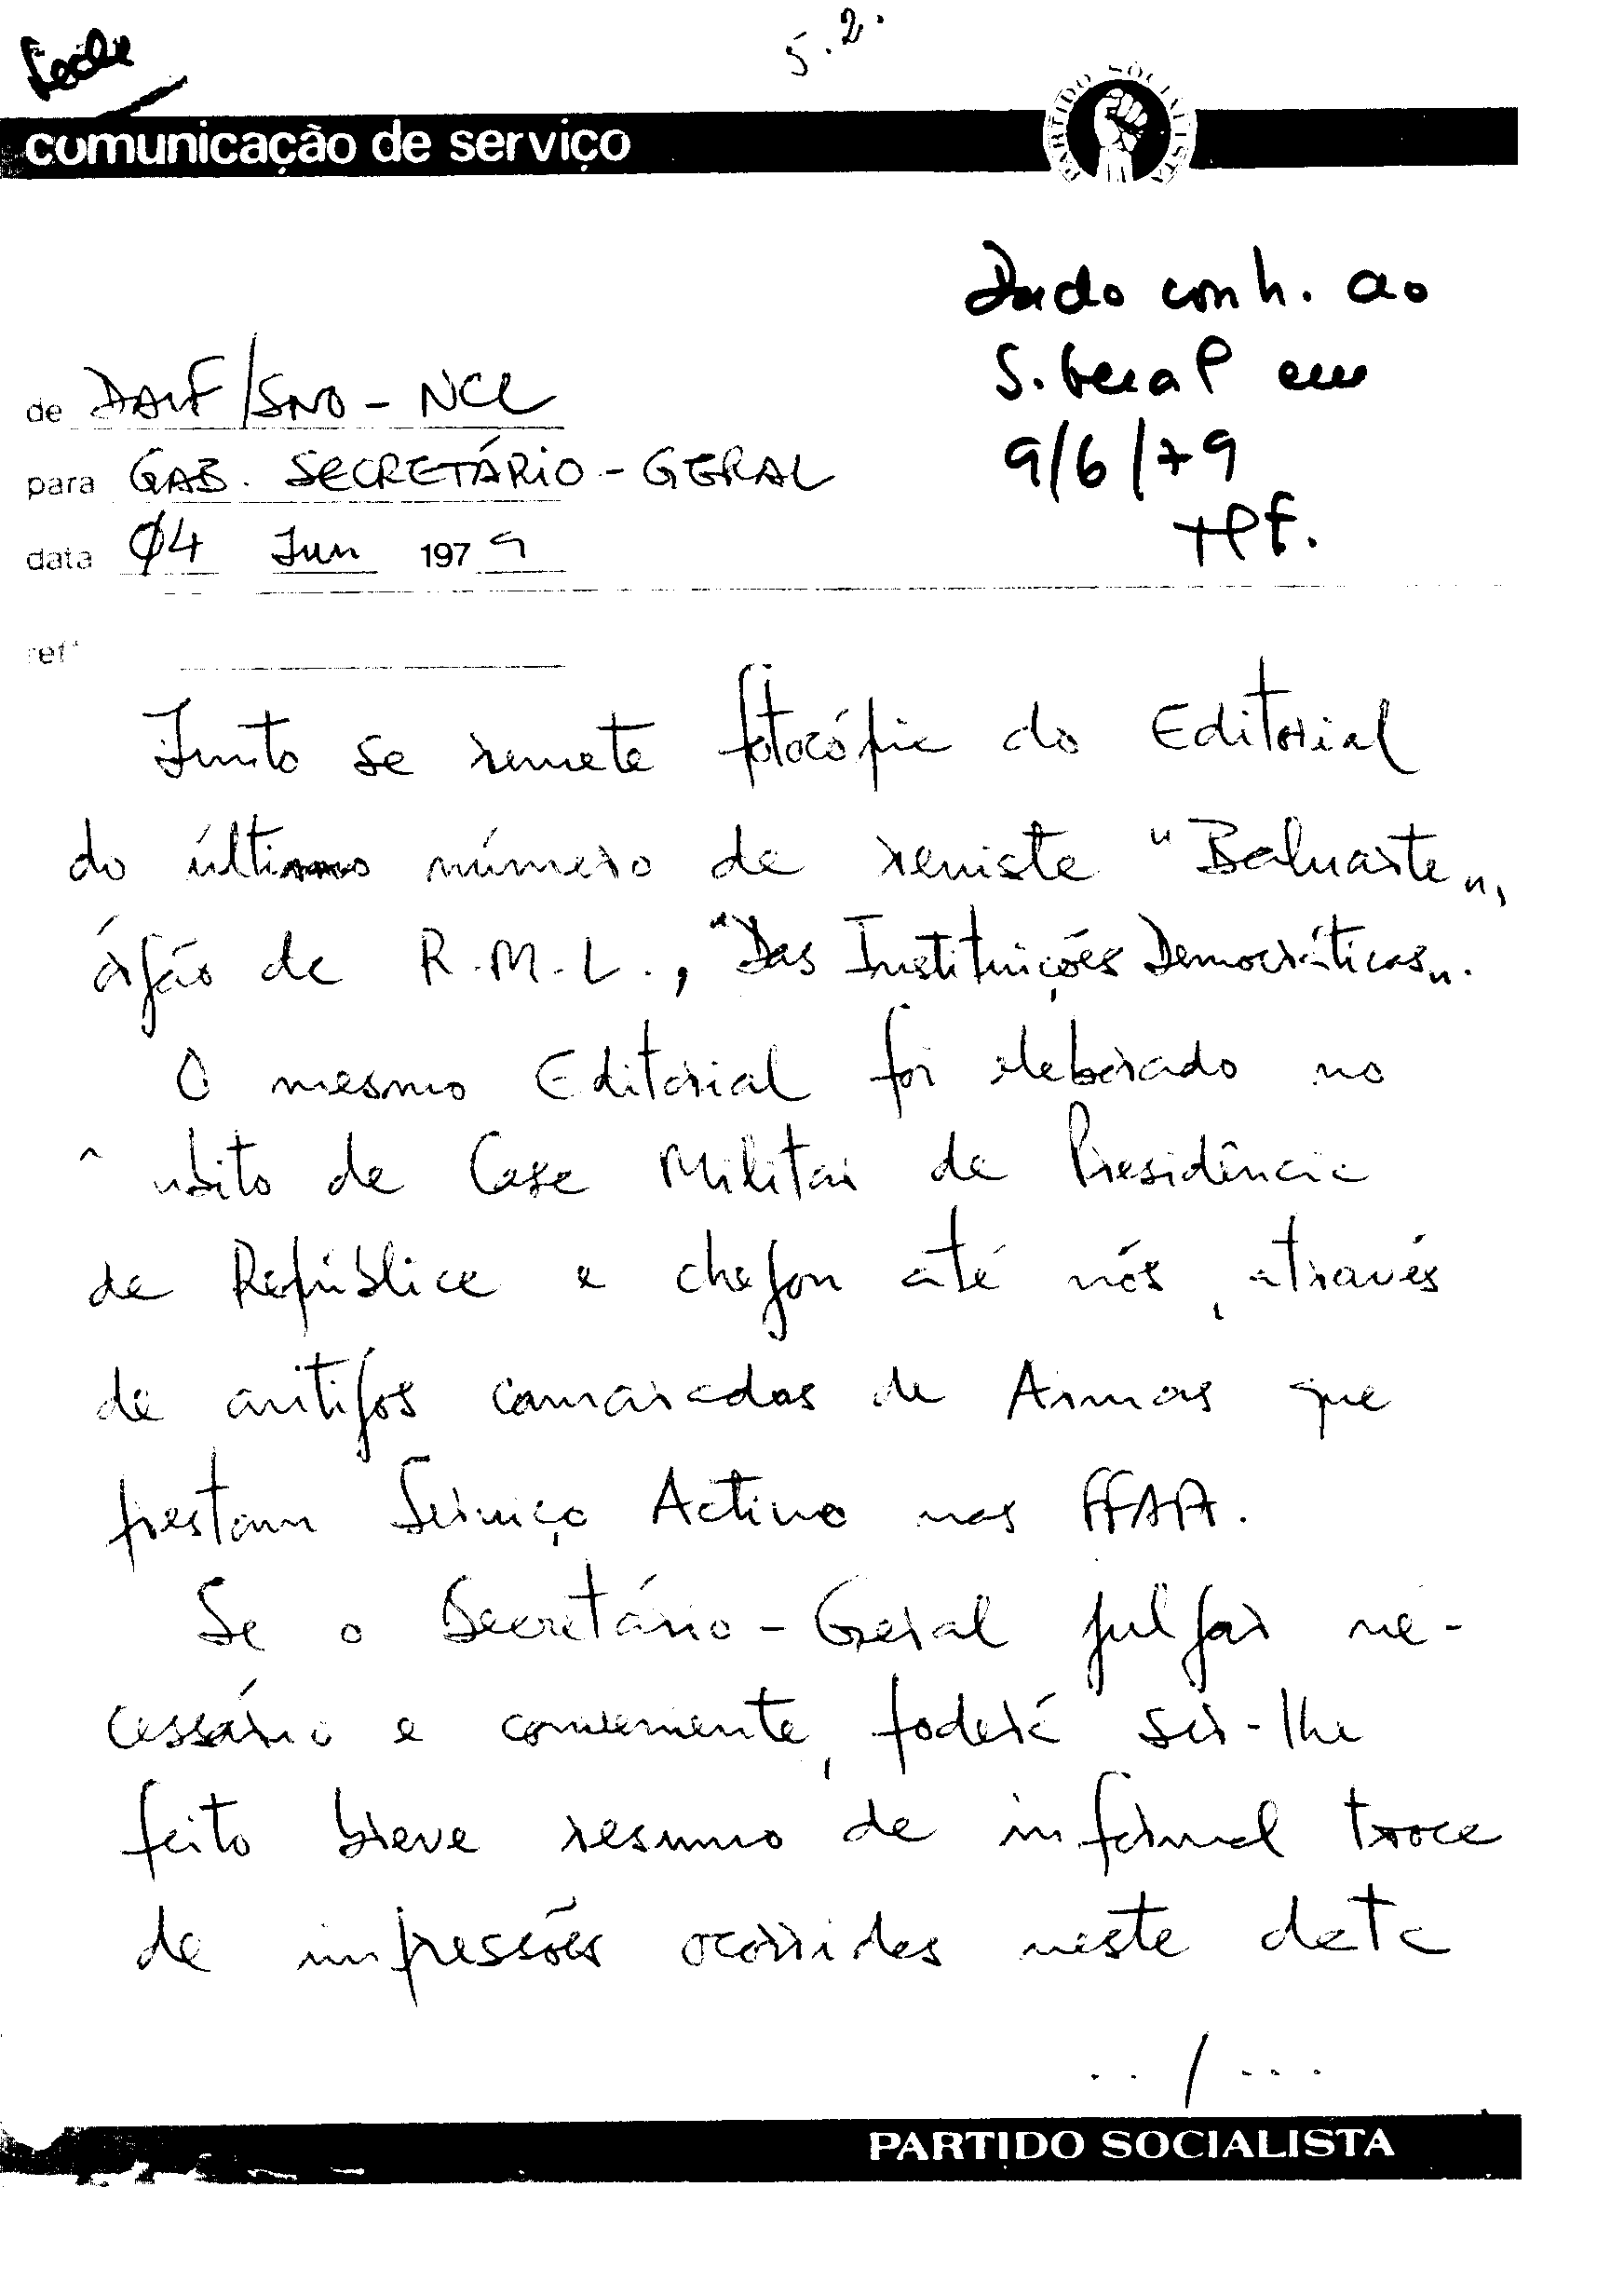 Sede
5.2.
comunicação de serviço
PARTIDO SOCIALISTA
Dado conh. ao
S. Geral em
9/6/79
de DAIF/SNO - NCL
para GAB. SECRETÁRIO-GERAL
data 04 Jun 1979
refª
Junto se remete fotocópia do Editorial
do último número da revista "Baluarte",
órgão da R.M.L., "Das Instituições Democráticas".
O mesmo Editorial foi elaborado no
âmbito da Casa Militar da Presidência
da República e chegou até nós, através
de antigos camaradas de Armas que
prestam Serviço Activo nas FFAA.
Se o Secretário-Geral julgar ne-
cessário e conveniente, poderá ser-lhe
feito breve resumo da informal troca
de impressões ocorridas nesta data
../...
PARTIDO SOCIALISTA